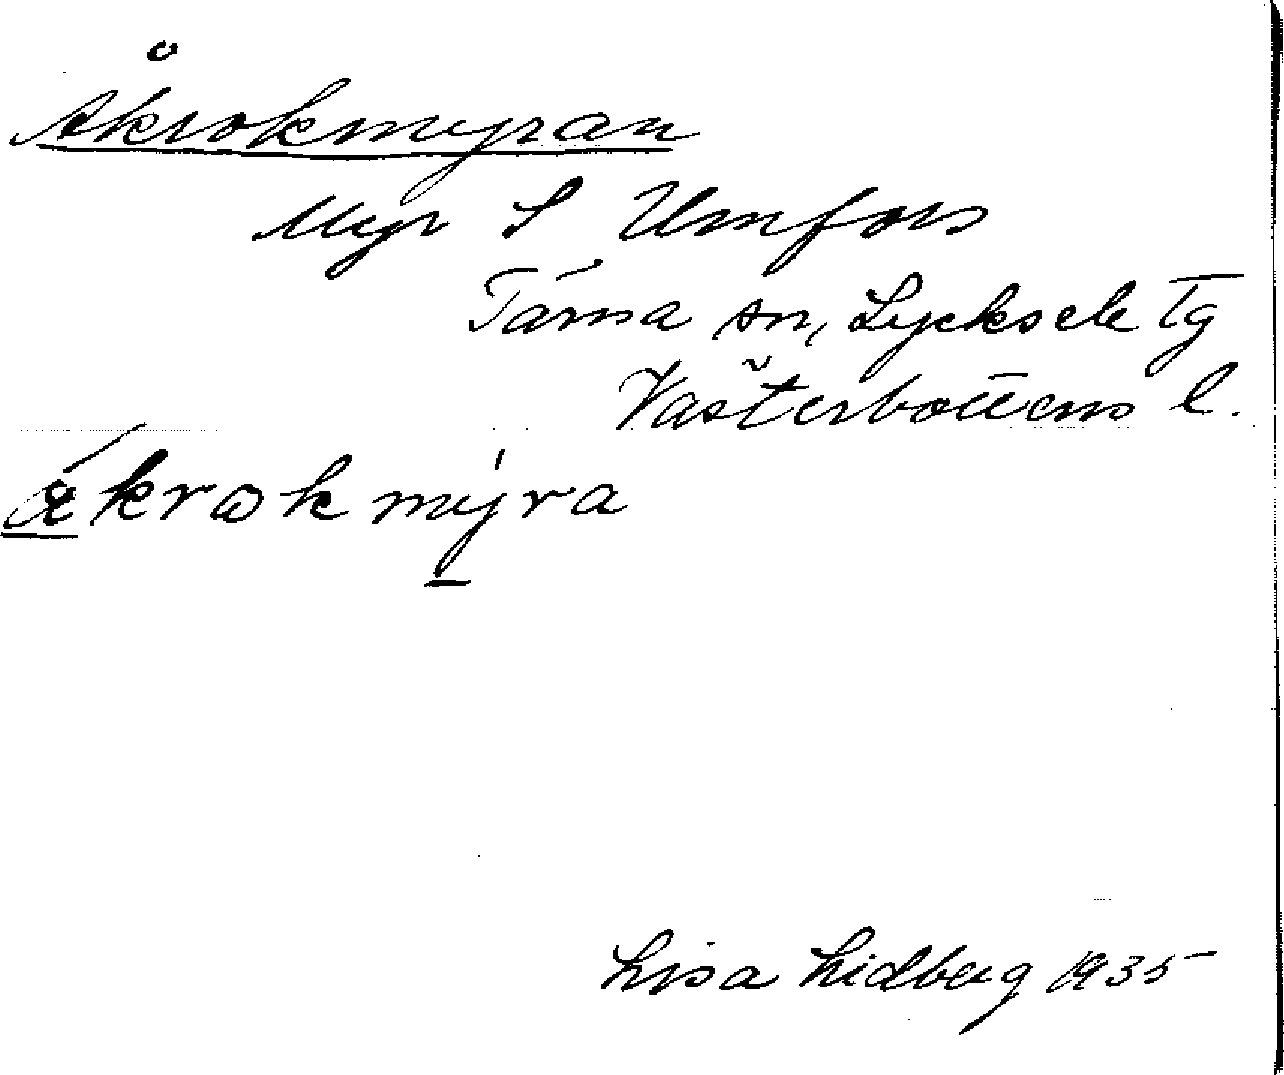 Åkrokmyran
Myr S Umfors
Tärna sn, Lycksele Tg
Västerbottens l.
ǽkrokmýra
Lisa Lidberg 1935